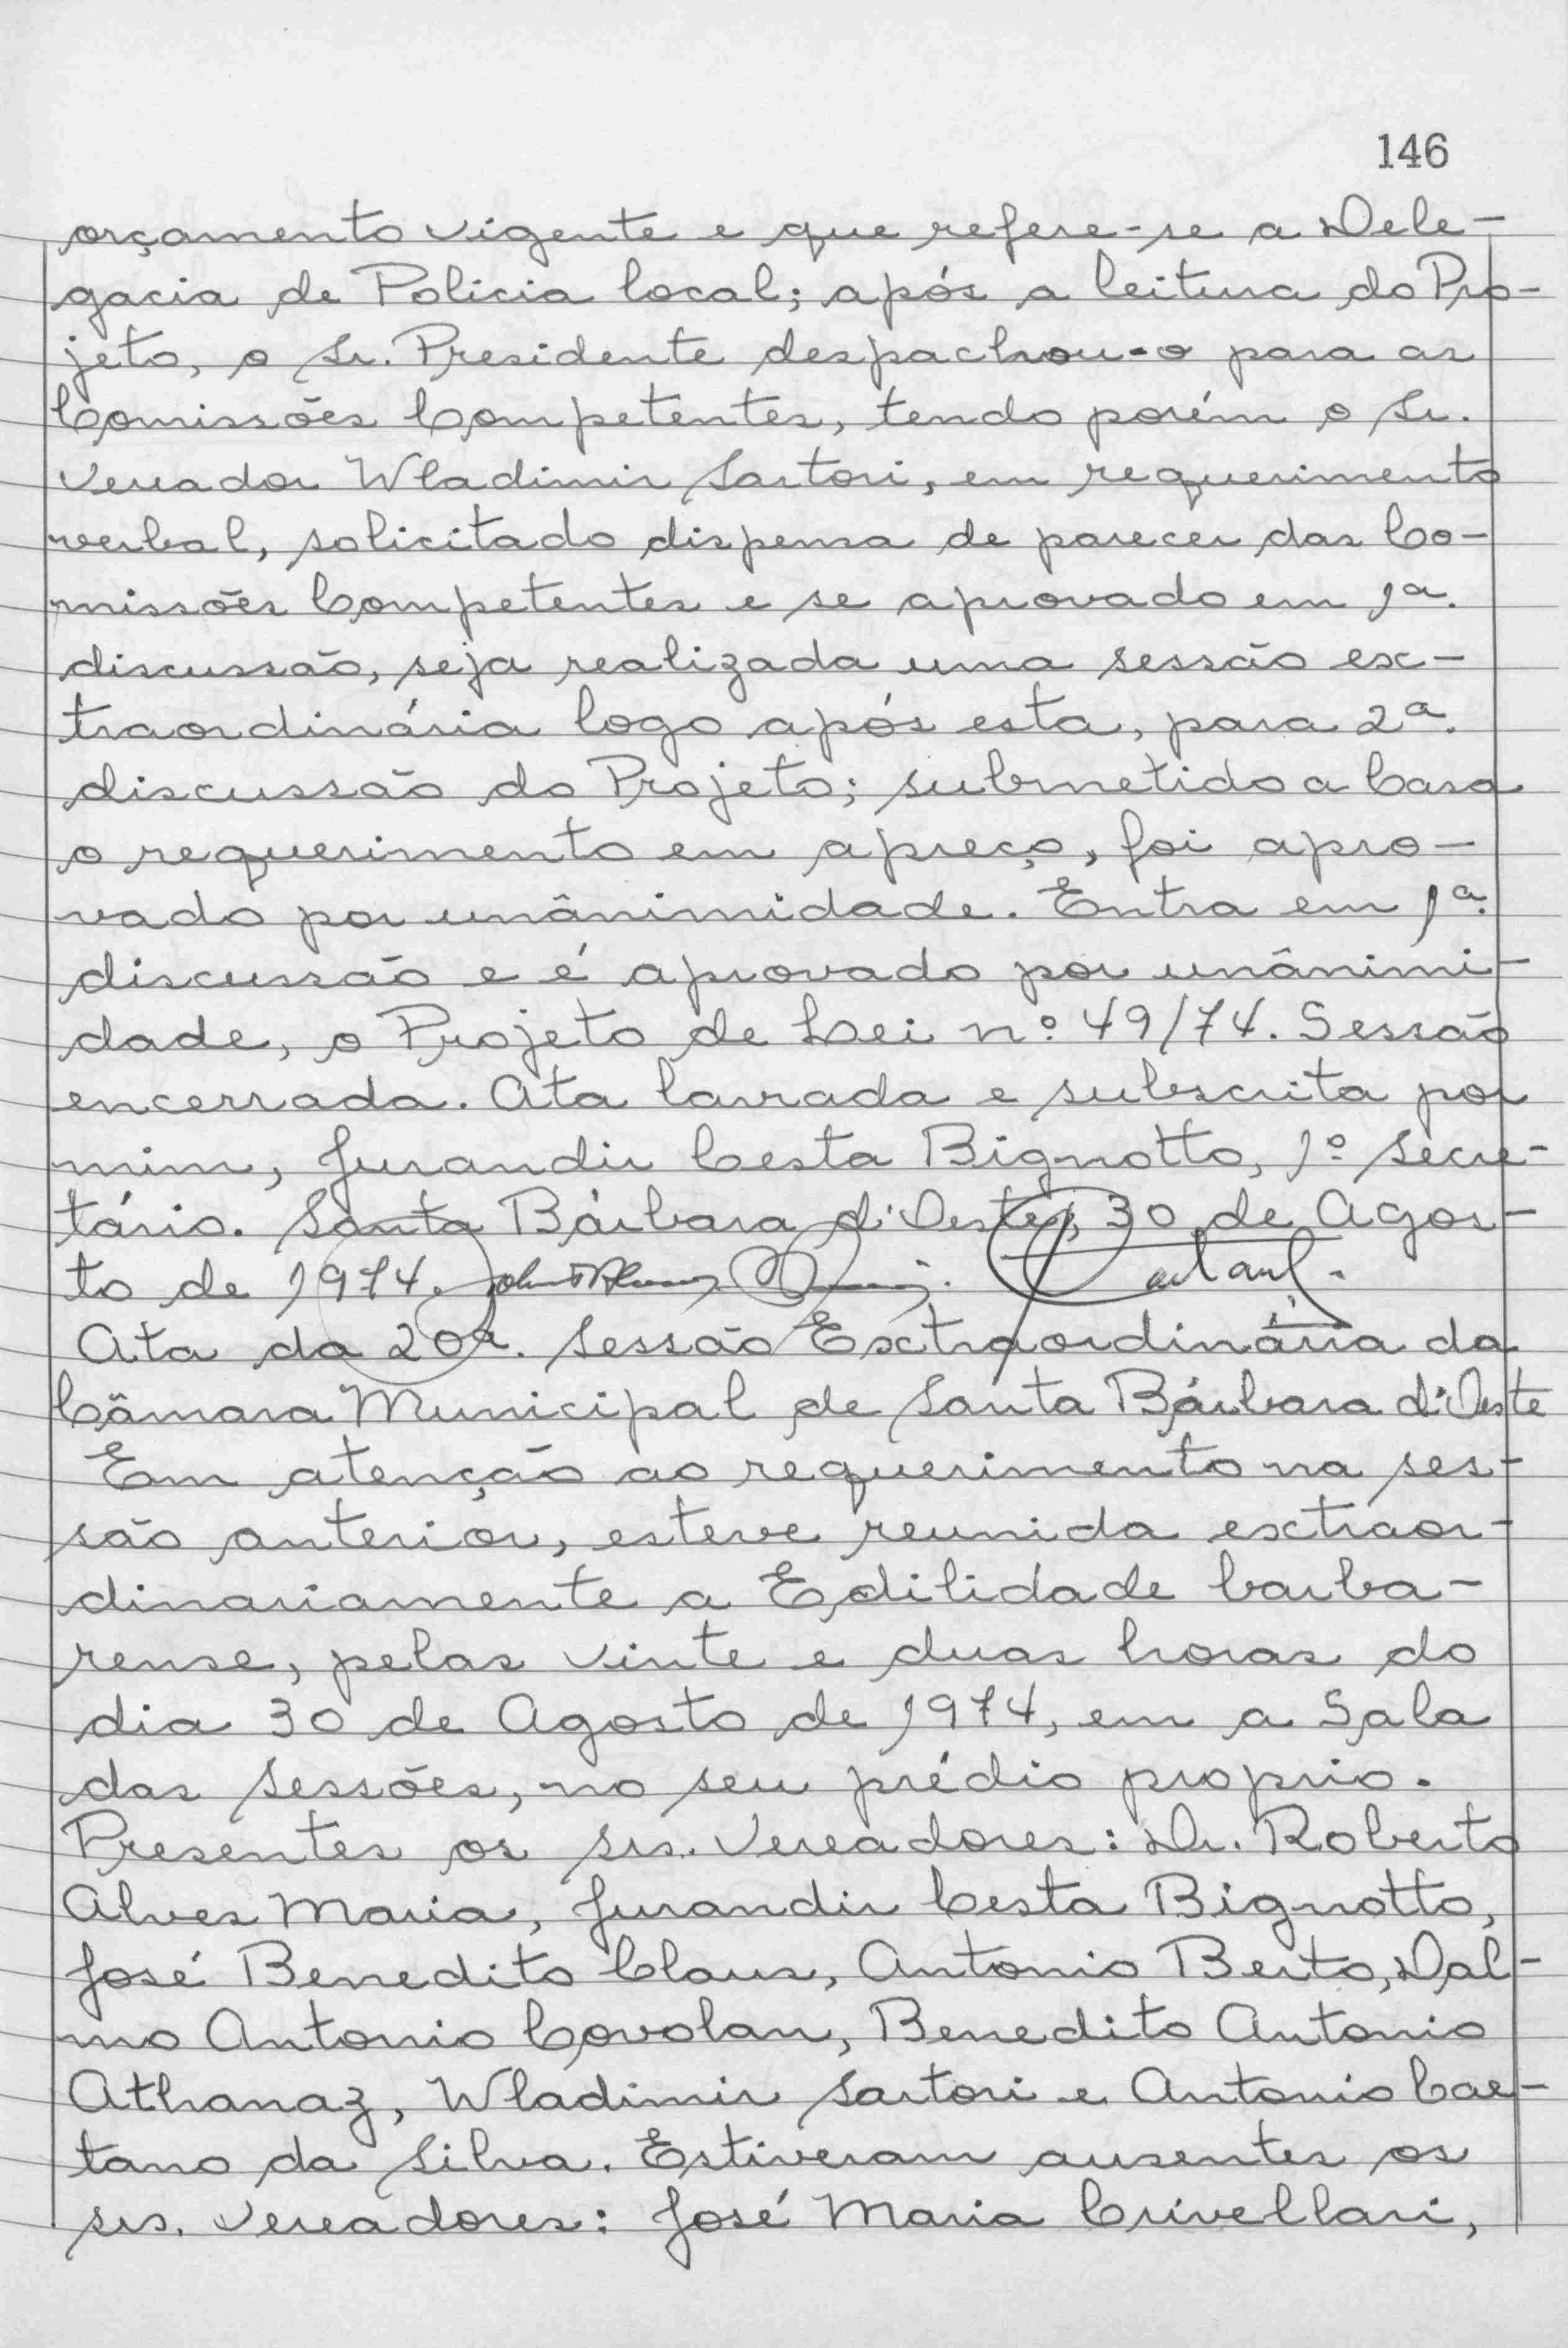 146
orçamento vigente e que refere-se a Dele-
gacia de Policia local; após a leitura do Pro-
jeto, o Sr. Presidente despachou-o para as
Comissões Competentes, tendo porém o Sr.
Vereador Wladimir Sartori, em requerimento
verbal, solicitado dispensa de parecer das Co-
missões Competentes e se aprovado em 1ª.
discussão, seja realizada uma sessão ex-
traordinária logo após esta, para 2ª.
discussão do Projeto; submetido a Casa
o requerimento em apreço, foi apro-
vado por unânimidade. Entra em 1ª.
discussão e é aprovado por unânimi-
dade, o Projeto de Lei nº 49/74. Sessão
encerrada. Ata lavrada e subscrita por
mim, Jurandir Cesta Bignotto, 1º Secre-
tário. Santa Bárbara d'Oeste, 30 de Agos-
to de 1974.
Ata da 20ª. Sessão Extraordinária da
Câmara Municipal de Santa Bárbara d'Oeste
Em atenção ao requerimento na ses-
são anterior, esteve reunida extraor-
dinariamente a Edilidade barba-
rense, pelas vinte e duas horas do
dia 30 de Agosto de 1974, em a Sala
das Sessões, no seu prédio proprio.
Presentes os srs. Vereadores: Dr. Roberto
Alves Maria, Jurandir Cesta Bignotto,
José Benedito Claus, Antonio Berto, Dal-
mo Antonio Covolan, Benedito Antonio
Athanaz, Wladimir Sartori e Antonio Cae-
tano da Silva. Estiveram ausentes os
srs. Vereadores: José Maria Crivellari,